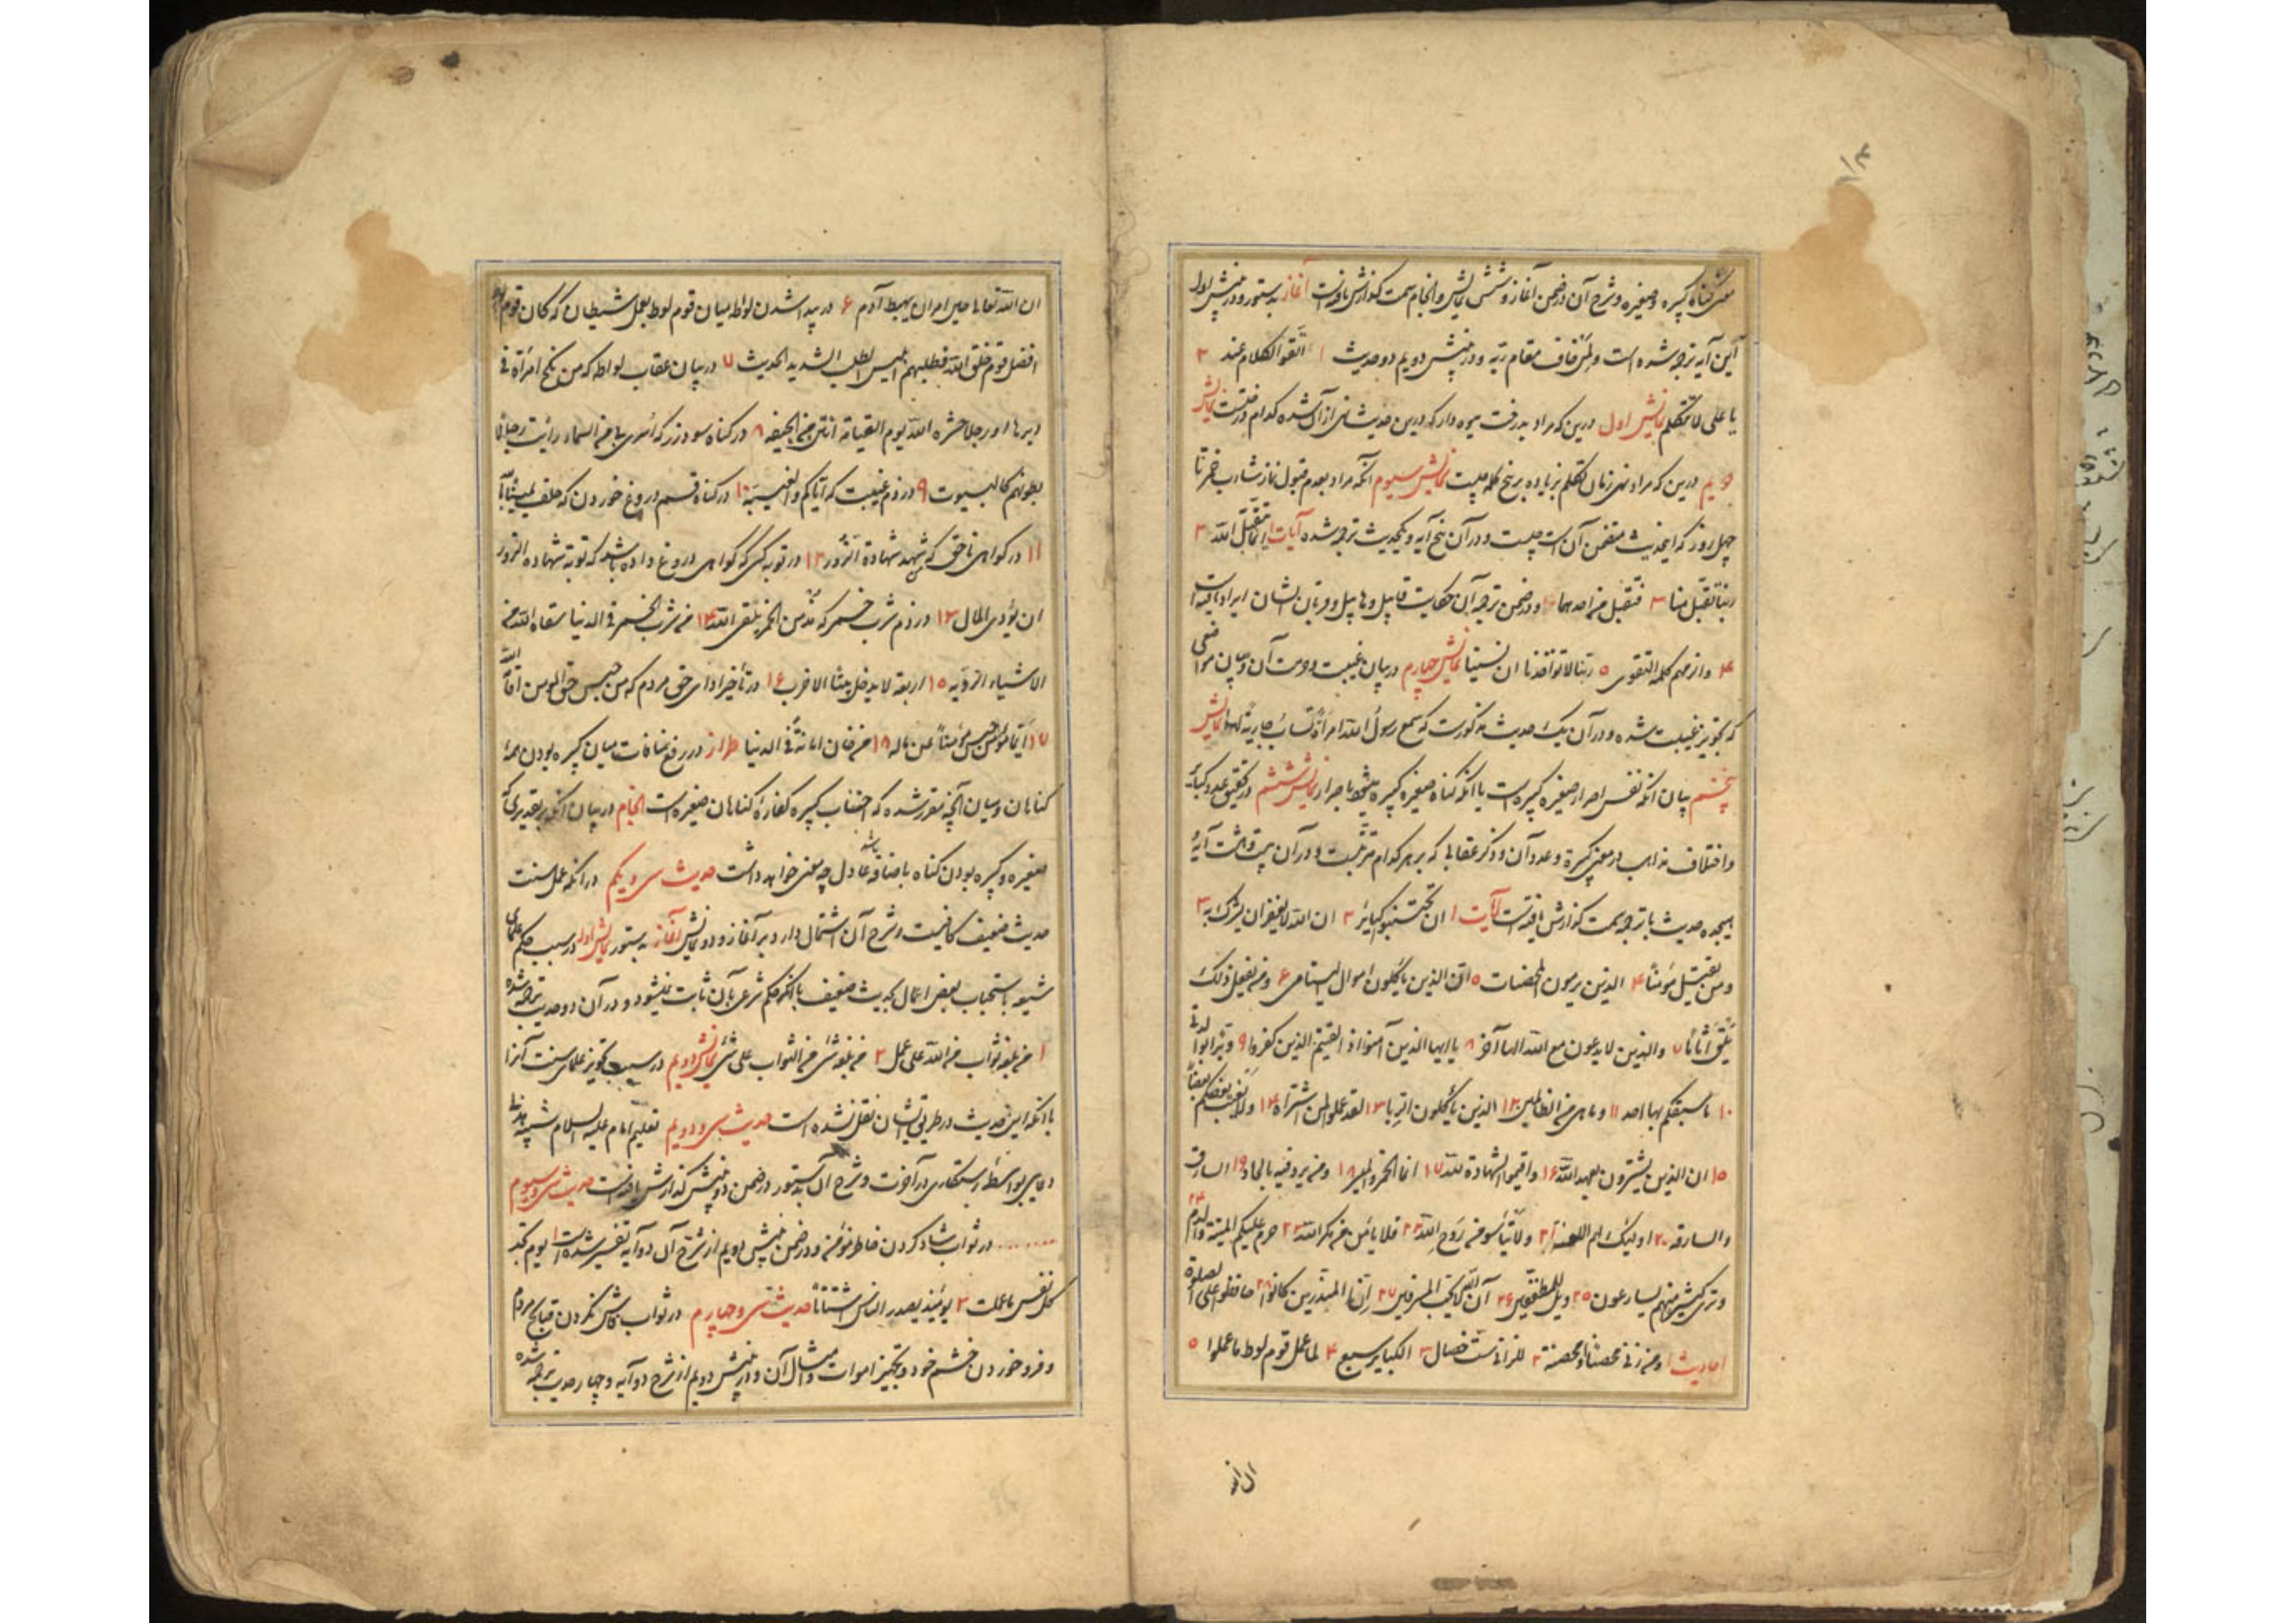 ۱۴
معنی گناه کبیره و صغیره و شرح آن در ضمن آغاز و شش نمایش و انجام سمت گذارش یافته است آغاز بدستور و در پیش اول
این آیه ترجمه شده است و لمن خاف مقام ربه و در پیش دویم دو حدیث ۱ اتقوا الکلام عند ۲
یا علی لا تتکلم نمایش اول درین که مراد بدرخت میوه دار که درین حدیث نهی از آن شده کدام درختست نمایش
دویم درین که مراد نهی زنان تکلم بزیاده بر پنج کلمه چیست نمایش سیوم آنکه مراد بعدم قبول نماز شارب خمر تا
چهل روز که این حدیث متضمن آن است چیست و در آن پنج آیه و یک حدیث ترجمه شده آیات ۱ انما یتقبل الله ۲
ربنا تقبل منا ۳ فتقبل من احدهما و در ضمن ترجمه آن حکایت قابیل و هابیل و قربان ایشان ایراد یافته است
۴ و الزمهم کلمة التقوی ۵ ربنا لا تؤاخذنا ان نسینا نمایش چهارم در بیان غیبت و حرمت آن و بیان مواضعی
که تجویز غیبت شده و در آن یک حدیث مذکور است که سمع رسول الله امراة تساب جاریة لها نمایش
پنجم بیان آنکه نفس اصرار صغیره کبیره است یا آنکه گناه صغیره کبیره میشود باصرار نمایش ششم در تحقیق عدد کبائر
و اختلاف مذاهب در معنی کبیرة و عدد آن و ذکر عقابی که بر هر کدام مترتبست و در آن بیست و هشت آیه و
هیجده حدیث با ترجمه سمت گذارش یافته است آیات ۱ ان تجتنبوا کبائر ۲ ان الله لا یغفر ان یشرک به ۳
و من یقتل مؤمنا ۴ الذین یرمون المحصنات ۵ ان الذین یأکلون اموال الیتامی ۶ و من یفعل ذلک
یلق اثاما ۷ والذین لا یدعون مع الله الها آخر ۸ یا ایها الذین آمنوا اذا لقیتم الذین کفروا ۹
۱۰ ما سبقکم بها احد ۱۱ و ما هی من الظالمین ۱۲ الذین یأکلون الربا ۱۳ لقد علموا لمن اشتراه ۱۴ و لا یغتب بعضکم بعضا
۱۵ ان الذین یشترون بعهد الله ۱۶ و اقیموا الشهادة لله ۱۷ انما الخمر و المیسر ۱۸ و من یرد فیه بالحاد ۱۹ السارق
والسارقه ۲۰ اولئک لهم اللعنة ۲۱ و لا تیأسوا من روح الله ۲۲ فلا یأمن من مکر الله ۲۳ حرم علیکم المیتة والدم ۲۴
و تری کثیرا منهم یسارعون ۲۵ ویل للمطففین ۲۶ ان الله لا یحب المسرفین ۲۷ ان المبذرین کانوا ۲۸ حافظوا علی الصلوة
احادیث ۱ و من زنی محصنا او محصنة ۲ للزانی ست خصال ۳ الکبائر سبع ۴ لما عمل قوم لوط ما عملوا ۵
ان الله
ان الله تعالی حین امر ان یهبط آدم ۶ در پیدا شدن لواط میان قوم لوط بعمل شیطان که کان قوم لوط
افضل قوم خلق الله فطلبهم ابلیس الطلب الشدید الحدیث ۷ در بیان عقاب لواطه که من ینکح امرأة فی
دبرها او رجلا حشره الله یوم القیامة انتن من الجیفه ۸ در گناه سود زر که اسری بی الی السماء رأیت رجالا
بطونهم کالبیوت ۹ در ذم غیبت که ایاکم و الغیبة ۱۰ در گناه قسم دروغ خوردن که
۱۱ در گواهی ناحق که شهد شهادة الزور ۱۲ در توبه کسی که گواهی دروغ داده باشد که توبة شهادة الزور
ان یؤدی المال ۱۳ در ذم شرب خمر که مدمن الخمر یلقی الله ۱۴ من شرب الخمر فی الدنیا سقاه الله من
الاشیاء الردیه ۱۵ اربعة لا یدخل بیتا الا خرب ۱۶ در تأخیر ادای حق مردم که من حبس حق المؤمن اقامه الله
۱۷ ایما مؤمن حبس مؤمنا عن ماله ۱۸ من خان امانة فی الدنیا طراز در رفع منافات میان کبیره بودن همه
گناهان و میان آنچه مقرر شده که اجتناب کبیره کفاره گناهان صغیره است انجام در بیان آنکه بر تقدیری که
صغیره و کبیره بودن گناه باضافه باشد عادل چه معنی خواهد داشت حدیث سی و یکم در آنکه عمل سنت
حدیث ضعیف کافیست و شرح آن اشتمال دارد بر آغاز و دو نمایش آغاز بدستور نمایش اول در سبب حکم علمای
شیعه باستحباب بعض اعمال بحدیث ضعیف با آنکه حکم شرعی بآن ثابت نمیشود و در آن دو حدیث ترجمه شده
۱ من بلغه ثواب من الله علی عمل ۲ من بلغه شئ من الثواب علی شئ نمایش دویم در سبب تجویز علمای سنت آنرا
با آنکه این حدیث در طریق ایشان نقل نشده است حدیث سی و دویم تعلیم امام علیه السلام شیبه هذلی
دعایی بواسطه رستگاری در آخرت و شرح آن بدستور در ضمن دو پیش گذارش یافته است حدیث سی و سیوم
........ در ثواب شاد کردن خاطر مؤمنی و در ضمن پیش دویم از شرح آن دو آیه تفسیر شده است ۱ یوم تجد
کل نفس ما عملت ۲ یومئذ یصدر الناس اشتاتا حدیث سی و چهارم در ثواب فاش نکردن قبایح مردم
و فرو خوردن خشم خود و تجهیز اموات و امثال آن و در پیش دویم از شرح دو آیه و چهار حدیث ترجمه شده